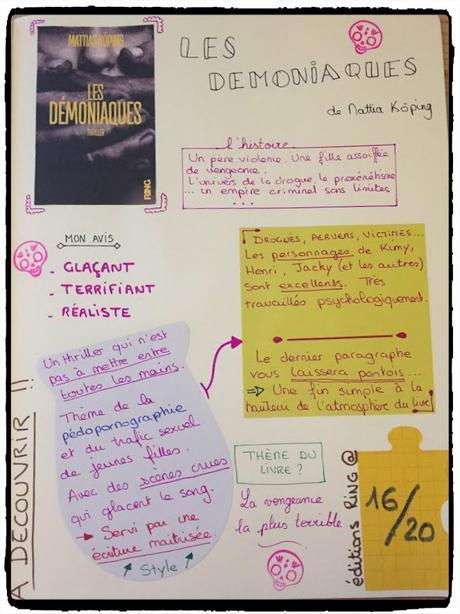 MATTIAS KÖPING
LES
DÉMONIAQUES
THRILLER
RING
LES
DEMONIAQUES
de Mattia Köping
l'histoire.
Un père violence. Une fille assoiffée
de vengeance.
L'univers de la drogue, le proxénétisme
... un empire criminel sans limites
...
MON AVIS
- GLAÇANT
- TERRIFIANT
- RÉALISTE
DROGUÉS, PERVERS, VICTIMES...
Les personnages de Kimy,
Henri, Jacky (et les autres)
Sont excellents. Très
travaillés psychologiquement.
Le dernier paragraphe
vous laissera pantois...
⇒ Une fin simple à la
hauteur de l'atmosphère du livre
Un thriller qui n'est
pas à mettre entre
toutes les mains.
Thème de la
pédopornographie
et du trafic sexuel
de jeunes filles.
Avec des scènes crues
qui glacent le sang.
→ Servi par une
écriture maitrisée.
↗ Style ↗
A DECOUVRIR !!
THÈME DU
LIVRE ?
La vengeance
la plus terrible
éditions RING @
16/20